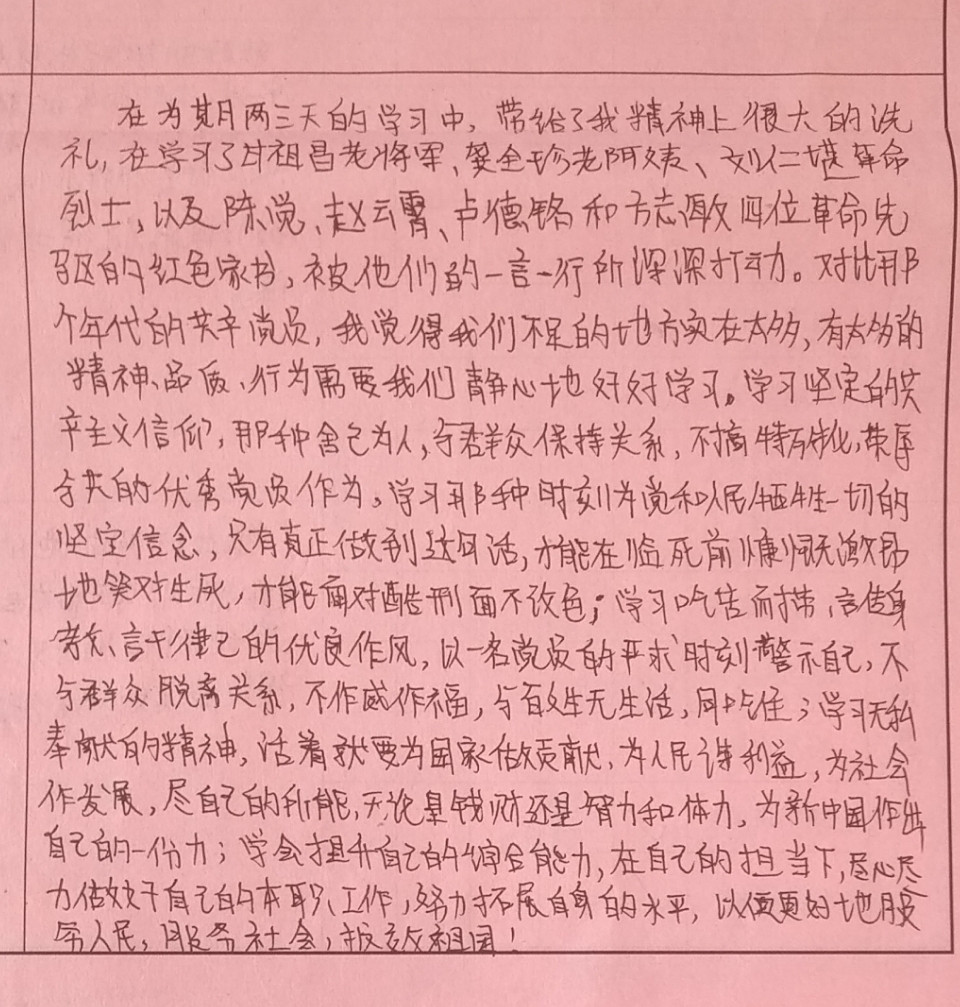 在为期两三天的学习中，带给了我精神上很大的洗
礼，在学习了甘祖昌老将军、龚全珍老阿姨、刘仁堪革命
烈士，以及陈觉、赵云霄、卢德铭和方志敏四位革命先
驱的红色家书，被他们的一言一行所深深打动。对比那
个年代的共产党员，我觉得我们不足的地方实在太多，有太多的
精神、品质、行为需要我们静心地好好学习。学习坚定的共
产主义信仰，那种舍己为人，与群众保持关系，不搞特殊化，荣辱
与共的优秀党员作为，学习那种时刻为党和人民牺牲一切的
坚定信念，只有真正做到这句话，才能在临死前慷慨激昂
地笑对生死，才能面对酷刑面不改色；学习吃苦耐劳，言传身
教、言行律己的优良作风，以一名党员的要求时刻警示自己，不
与群众脱离关系，不作威作福，与百姓无生活，同吃住；学习无私
奉献的精神，活着就要为国家做贡献，为人民谋利益，为社会
作发展，尽自己的所能，无论是钱财还是智力和体力，为新中国作出
自己的一份力；学会提升自己的综合能力，在自己的担当下，尽心尽
力做好自己的本职工作，努力拓展自身的水平，以便更好地服
务人民，服务社会，报效祖国！